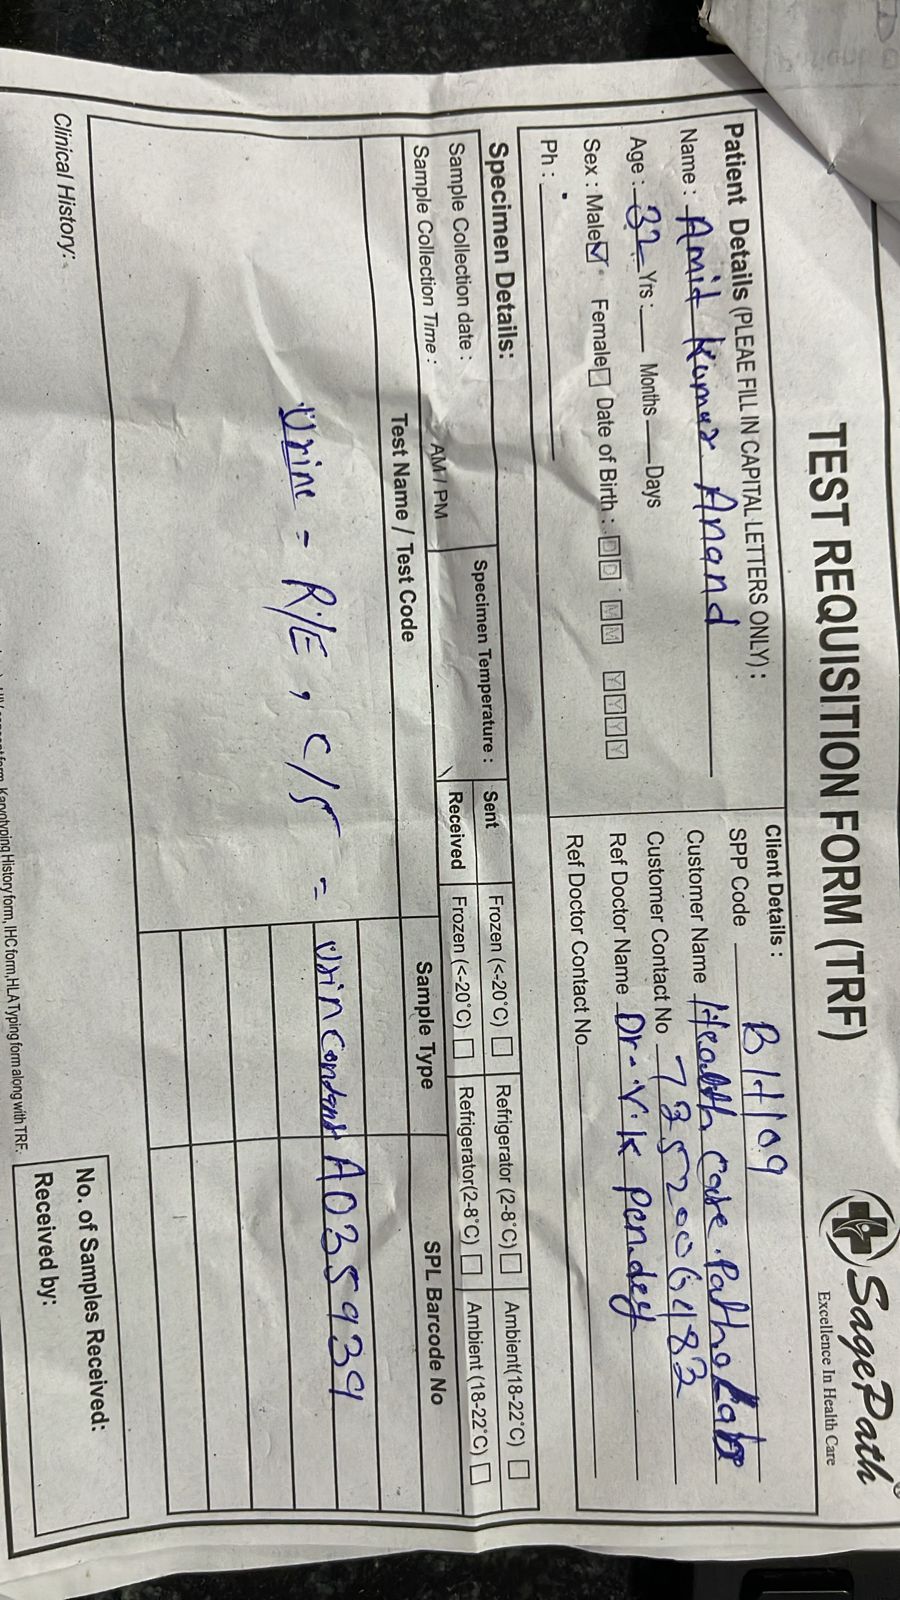 TEST REQUISITION FORM (TRF)
SagePath
Excellence In Health Care
Patient Details (PLEAE FILL IN CAPITAL LETTERS ONLY) :
Name : Amit Kumar Anand
Age : 32 Yrs : Months Days
Sex : Male ☑ Female ☐ Date of Birth : D D M M Y Y Y Y
Ph :
Client Details :
SPP Code BH109
Customer Name Health Care Patho Lab
Customer Contact No 7352006483
Ref Doctor Name Dr. V.K Pandey
Ref Doctor Contact No
Specimen Details:
Sample Collection date :
Sample Collection Time : AM / PM
Specimen Temperature :
Sent Frozen (<-20°C) ☐ Refrigerator (2-8°C) ☐ Ambient(18-22°C) ☐
Received Frozen (<-20°C) ☐ Refrigerator(2-8°C) ☐ Ambient (18-22°C) ☐
Test Name / Test Code Sample Type SPL Barcode No
Urine = R/E, C/S = A0355939
Clinical History:
No. of Samples Received:
Received by:
Karyotyping History form, IHC form, HLA Typing form along with TRF.